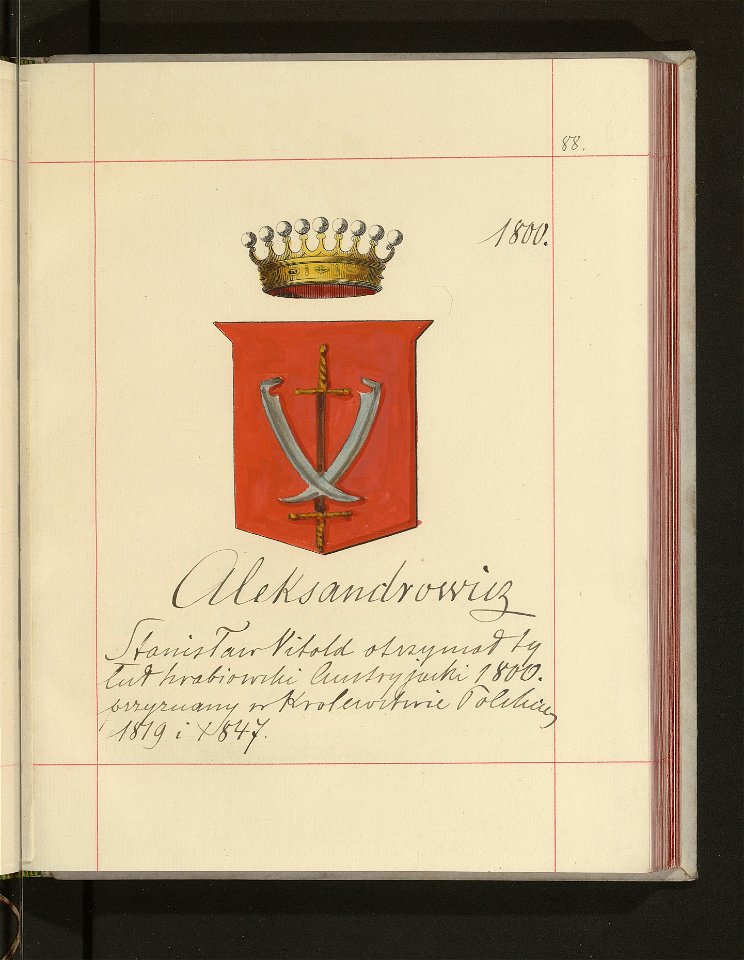 88.
1800.
Aleksandrowicz
Stanisław Vitold otrzymał ty
tuł hrabiowski Austryjacki 1800.
przyznany w Królewstwie Polskiem
1819 i 1847.